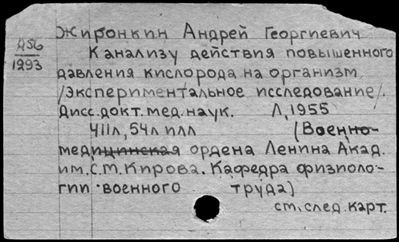 Жиронкин Андрей Георгиевич
Д56
1293
К анализу действия повышенного
давления кислорода на организм.
/Экспериментальное исследование/.
Дисс. докт. мед. наук. Л, 1955
411л, 54л илл (Военно-
медицинская ордена Ленина Акад.
им. С.М. Кирова. Кафедра физиоло-
гии военного труда)
см. след. карт.